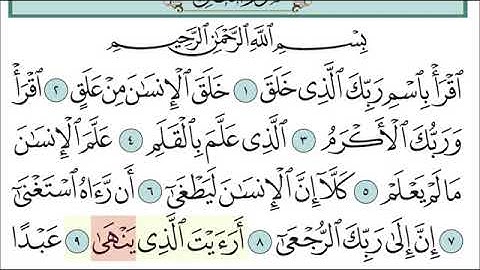 بِسْمِ اللَّهِ الرَّحْمَٰنِ الرَّحِيمِ
اقْرَأْ بِاسْمِ رَبِّكَ الَّذِي خَلَقَ ١ خَلَقَ الْإِنسَانَ مِنْ عَلَقٍ ٢ اقْرَأْ
وَرَبُّكَ الْأَكْرَمُ ٣ الَّذِي عَلَّمَ بِالْقَلَمِ ٤ عَلَّمَ الْإِنسَانَ
مَا لَمْ يَعْلَمْ ٥ كَلَّا إِنَّ الْإِنسَانَ لَيَطْغَىٰ ٦ أَن رَّءَاهُ اسْتَغْنَىٰ
٧ إِنَّ إِلَىٰ رَبِّكَ الرُّجْعَىٰ ٨ أَرَءَيْتَ الَّذِي يَنْهَىٰ ٩ عَبْدًا